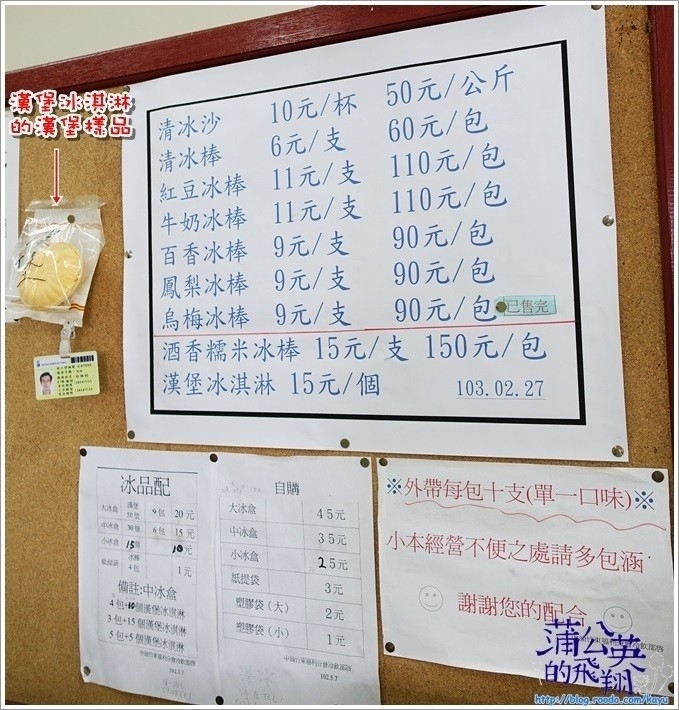 漢堡冰淇淋
的漢堡樣品
清冰沙 10元/杯 50元/公斤
清冰棒 6元/支 60元/包
紅豆冰棒 11元/支 110元/包
牛奶冰棒 11元/支 110元/包
百香冰棒 9元/支 90元/包
鳳梨冰棒 9元/支 90元/包
烏梅冰棒 9元/支 90元/包 已售完
酒香糯米冰棒 15元/支 150元/包
漢堡冰淇淋 15元/個
103.02.27
冰品配
大冰盒 9包 20元
中冰盒 6包 15元
小冰盒 15個 10元
4包 1元
備註:中冰盒
4包+10個漢堡冰淇淋
3包+15個漢堡冰淇淋
5包+5個漢堡冰淇淋
102.5.7
自購
大冰盒 45元
中冰盒 35元
小冰盒 25元
紙提袋 3元
塑膠袋(大) 2元
塑膠袋(小) 1元
102.5.7
※外帶每包十支(單一口味)※
小本經營不便之處請多包涵
謝謝您的配合
蒲公英
的飛翔
http://blog.roodo.com/kayu